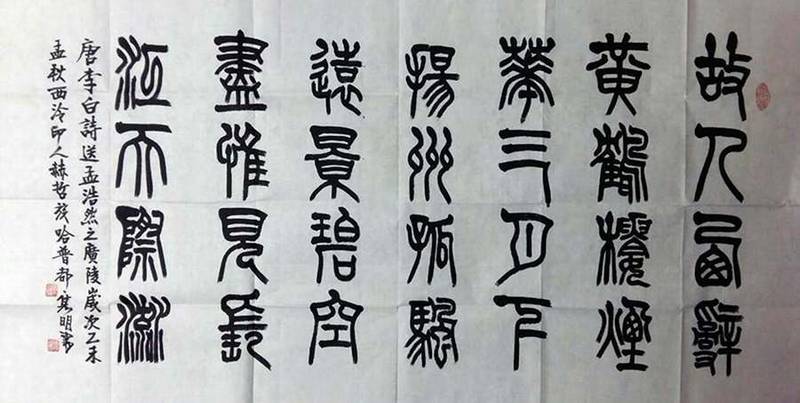 故人西辭
黃鶴樓煙
華三月下
揚州孤颿
遠景碧空
盡惟見長
江天際流
唐李白詩送孟浩然之廣陵歲次乙未
孟秋西泠印人赫哲族哈普都雋明書